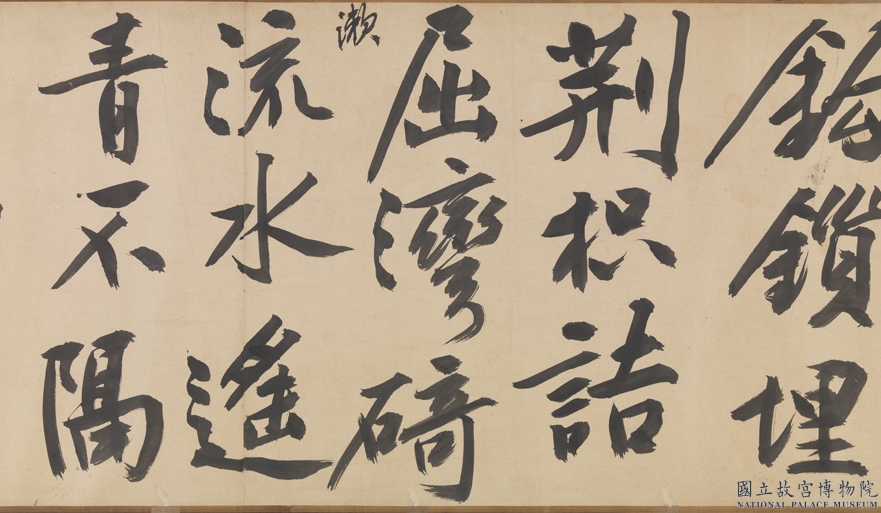 鎖埋
荆枳詰
屈灣碕
瀨
流水遙
青不隔
國立故宮博物院
NATIONAL PALACE MUSEUM